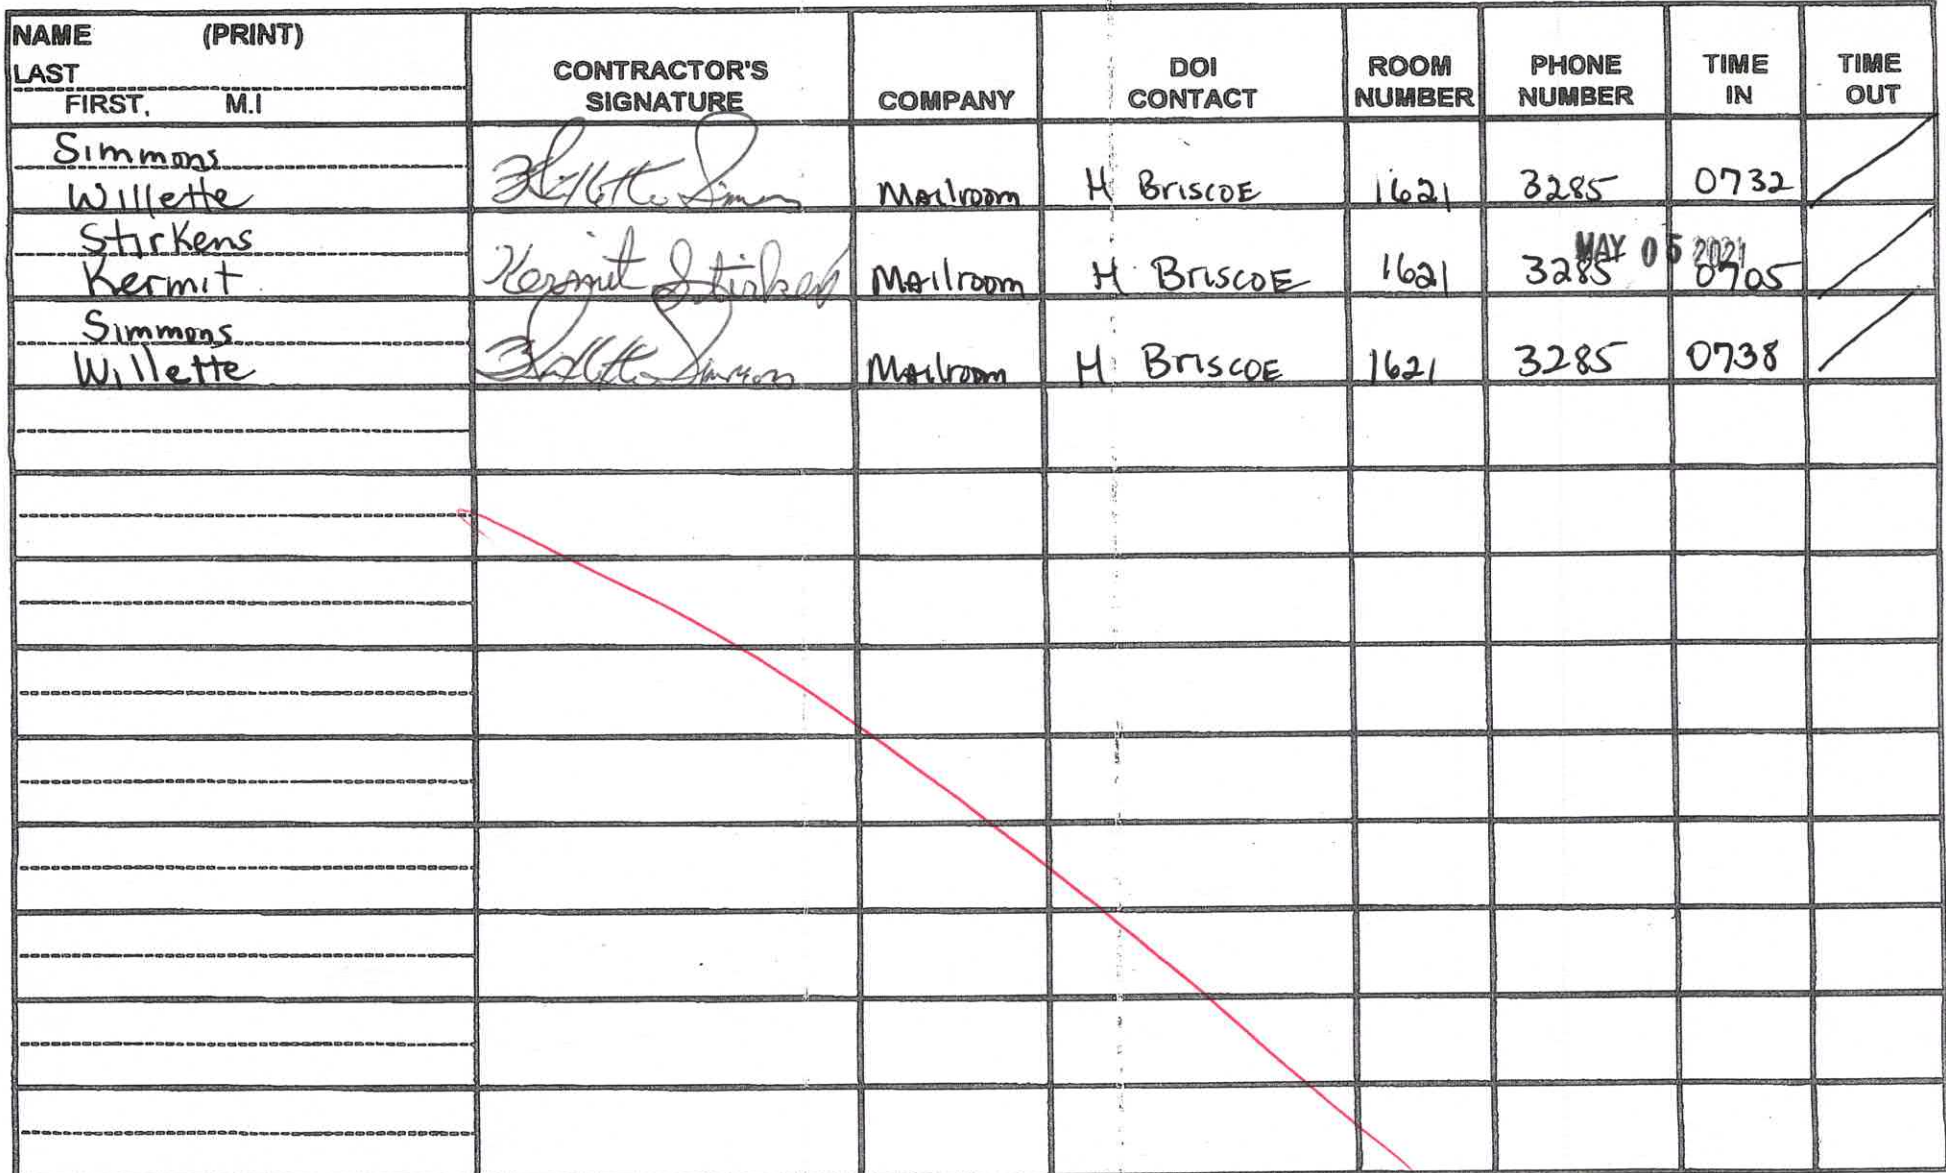 NAME (PRINT)
LAST
FIRST, M.I
CONTRACTOR'S
SIGNATURE
COMPANY
DOI
CONTACT
ROOM
NUMBER
PHONE
NUMBER
TIME
IN
TIME
OUT
Simmons
Willette Willette Simmons Mailroom H Briscoe 1621 3285 0732
Stirkens
MAY 05 2021
Kermit Kermit Stirkens Mailroom H Briscoe 1621 3285 0705
Simmons
Willette Willette Simmons Mailroom H Briscoe 1621 3285 0738